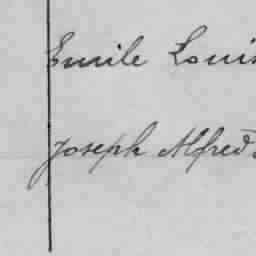 Emile Louis
Joseph Alfred